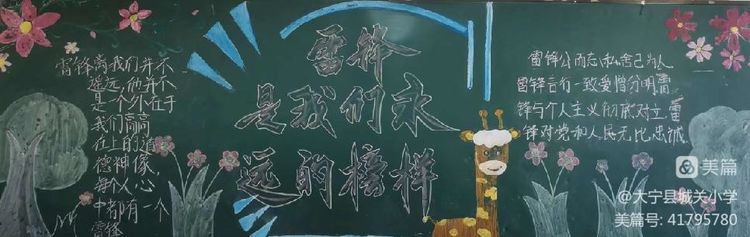 雷锋离我们并不
遥远他并不
是一个外在于
我们高高
在上的道
德神像,
每个人心
中都有一个
雷锋
雷锋
是我们永
远的榜样
雷锋公而忘私舍己为人
雷锋言行一致爱憎分明雷
锋与个人主义彻底对立雷
锋对党和人民无比忠诚
美篇
@大宁县城关小学
美篇号: 41795780